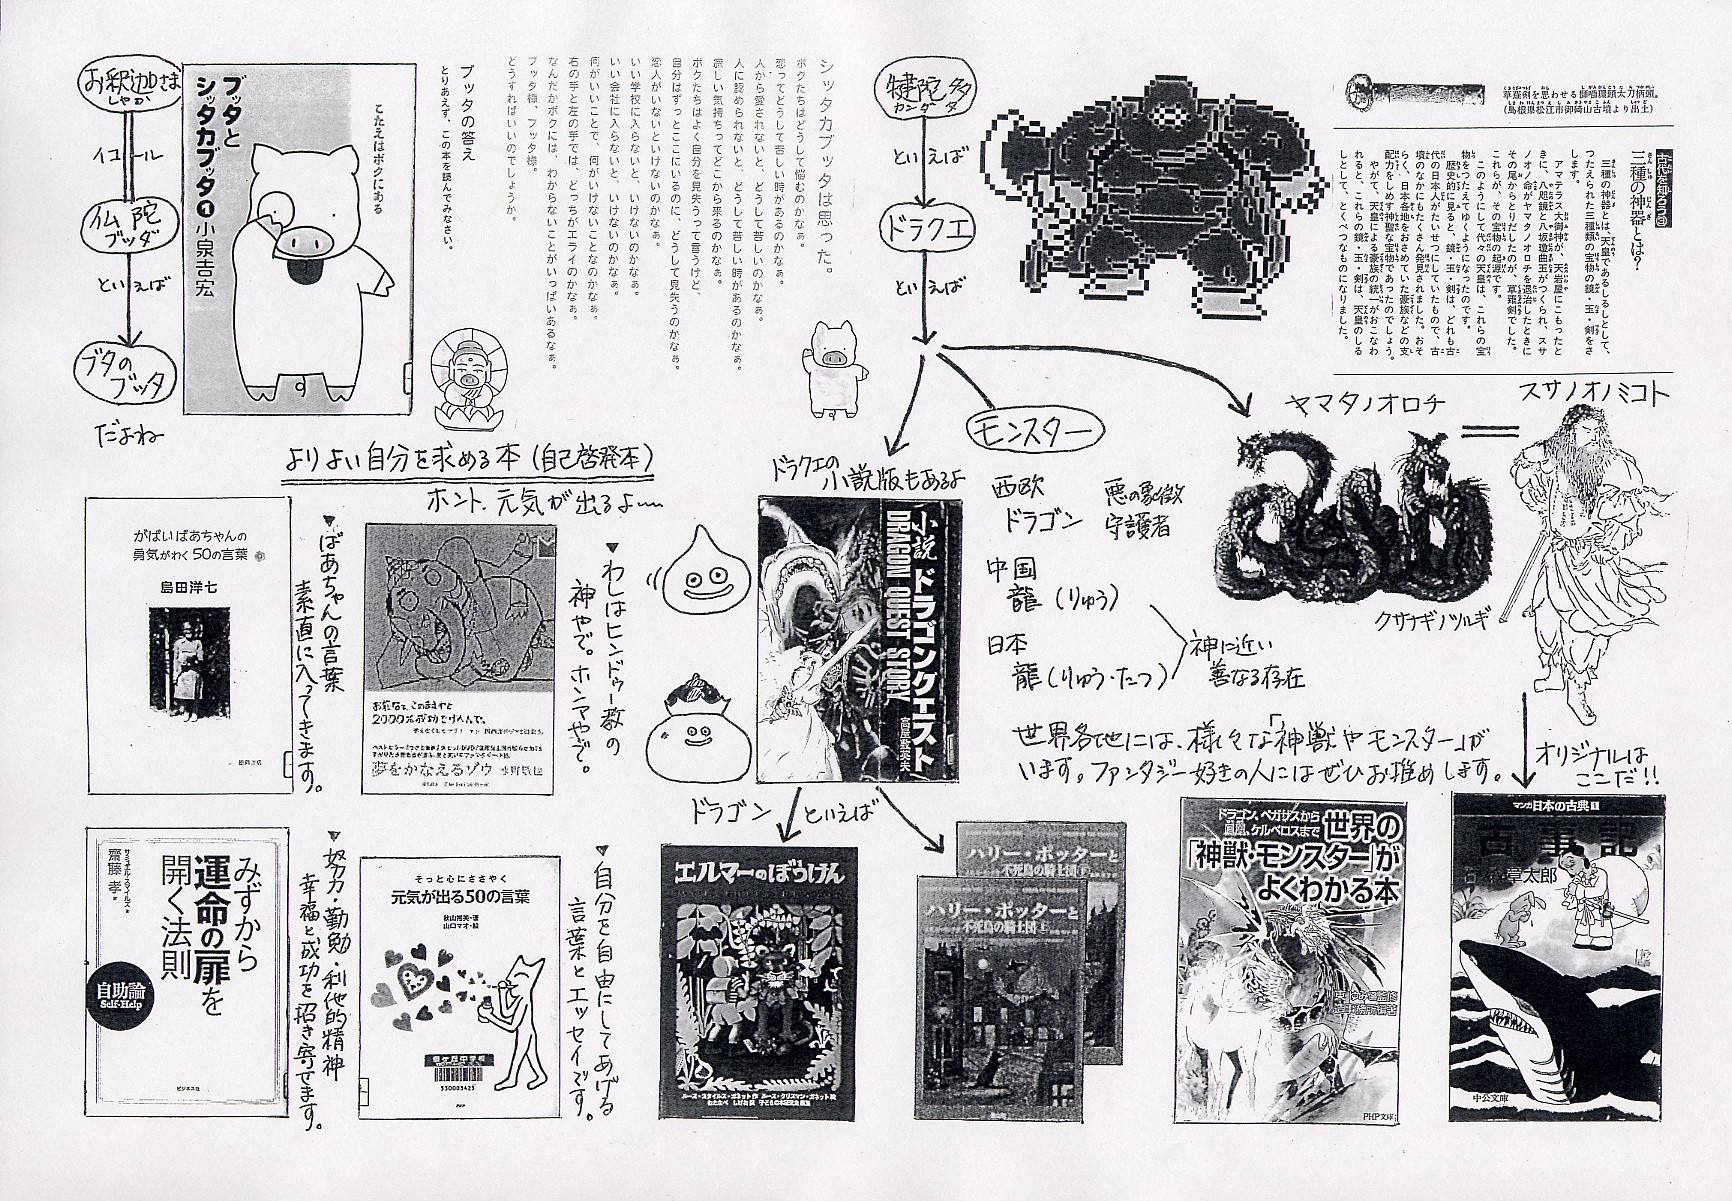 お釈迦さま
しゃか
イコール
仏陀
ブッダ
といえば
ブタの
ブッタ
だよね
ブッタと
シッタカブッタ1
小泉吉宏
こたえはボクにある
ブッタの答え
とりあえず、この本を読んでみなさい。
シッタカブッタは思った。
ボクたちはどうして悩むのかなぁ。
恋ってどうして苦しい時があるのかなぁ。
人から愛されないと、どうして苦しいのかなぁ。
人に認められないと、どうして苦しい時があるのかなぁ。
寂しい気持ちってどこから来るのかなぁ。
ボクたちはよく自分を見失うって言うけど、
自分はずっとここにいるのに、どうして見失うのかなぁ。
恋人がいないといけないのかなぁ。
いい学校に入らないと、いけないのかなぁ。
いい会社に入らないと、いけないのかなぁ。
何がいいことで、何がいけないことなのかなぁ。
右の手と左の手では、どっちがエライのかなぁ。
なんだかボクには、わからないことがいっぱいあるなぁ。
ブッタ様、ブッタ様。
どうすればいいのでしょうか。
犍陀多
カンダタ
といえば
ドラクエ
といえば
モンスター
草薙剣を思わせる獅噛環頭太刀柄頭。
（島根県松江市御崎山古墳より出土）
古代を知ろう③
三種の神器とは？
三種の神器とは、天皇であるしるしとして、
つたえられた三種類の宝物の鏡・玉・剣をさ
します。
アマテラス大御神が、天岩屋にこもったと
きに、八咫鏡と八坂瓊曲玉がつくられ、スサ
ノオノ命がヤマタノオロチを退治したときに
その尾からとりだしたのが、草薙剣でした。
これらが、その宝物の起源です。
このようにして代々の天皇は、これらの宝
物をつたえてゆくようになったのです。
歴史的に見ると、鏡・玉・剣は、どれも古
代の日本人がたいせつにしていたもので、古
墳のなかにもたくさん発見されました。おそ
らく、日本各地をおさめていた豪族などの支
配力をしめす神聖な宝物であったのでしょう。
やがて、天皇による豪族の統一がおこなわ
れると、これらの鏡・玉・剣は、天皇のしる
しとして、とくべつなものになりました。
ヤマタノオロチ
スサノオノミコト
クサナギノツルギ
オリジナルは
ここだ!!
よりよい自分を求める本（自己啓発本）
ホント、元気が出るよ〜
がばいばあちゃんの
勇気がわく50の言葉
島田洋七
徳間書店
▼ばあちゃんの言葉
素直に入ってきます。
お前なぁ、このままやと
2000%成功でけへんで。
夢をかなえるゾウ 水野敬也
▼わしはヒンドゥー教の
神やで。ホンマやで。
みずから
運命の扉を
開く法則
サミュエル・スマイルズ 著
齋藤 孝 訳
自助論
Self-Help
ビジネス社
▼努力・勤勉・利他的精神
幸福と成功を招き寄せます。
そっと心にささやく
元気が出る50の言葉
秋山裕美・著
山口マオ・絵
530003425
PHP
▼自分を自由にしてあげる
言葉とエッセイです。
ドラクエの
小説版もあるよ
小説 ドラゴンクエスト
DRAGON QUEST STORY
高屋敷英夫
ドラゴン といえば
西欧
ドラゴン
悪の象徴
守護者
中国
龍（りゅう）
日本
龍（りゅう・たつ）
神に近い
善なる存在
世界各地には、様々な「神獣やモンスター」が
います。ファンタジー好きの人にはぜひお推めします。
エルマーのぼうけん
ルース・スタイルス・ガネット 作 ルース・クリスマン・ガネット 絵
わたなべ しげお 訳 子どもの本研究会 編集
ハリー・ポッターと
不死鳥の騎士団 下
ハリー・ポッターと
不死鳥の騎士団 上
ドラゴン、ペガサスから
鳳凰、ケルベロスまで
世界の
「神獣・モンスター」が
よくわかる本
東 ゆみこ 監修
PHP文庫
マンガ日本の古典1
古事記
石ノ森章太郎
中公文庫